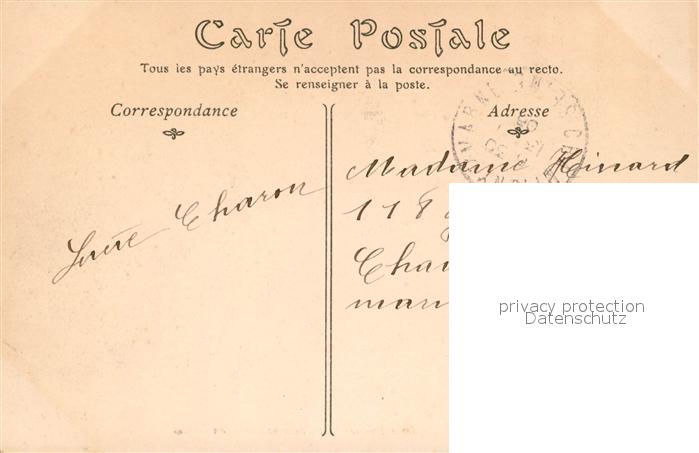 Carte Postale
Tous les pays étrangers n'acceptent pas la correspondance au recto.
Se renseigner à la poste.
Correspondance
Adresse
Charon
Madame Hinard
118
Cha
mar
privacy protection
Datenschutz
MARNE